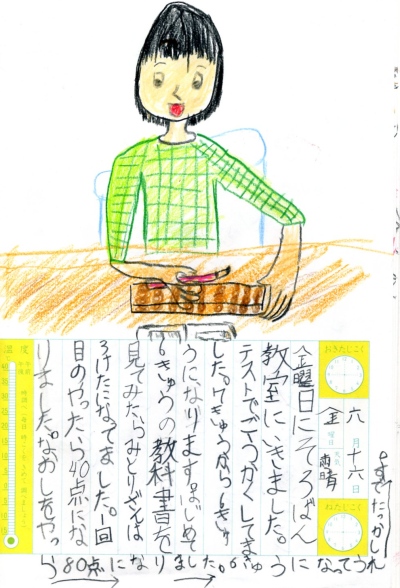 おきたじこく
六月十六日
金曜日
天気
雨晴
ねたじこく
温度
金曜日にそろばんに
教室にいきました。
テストでごうかくして
した。7きゅうから6きゅ
うになります。はじめて
6きゅうの教科書を
見てみたらみとりざんは
けたになってました。一回
目のやったら40点にな
りました。なおしをやった
ら80点になりました。6きゅうになってうれ